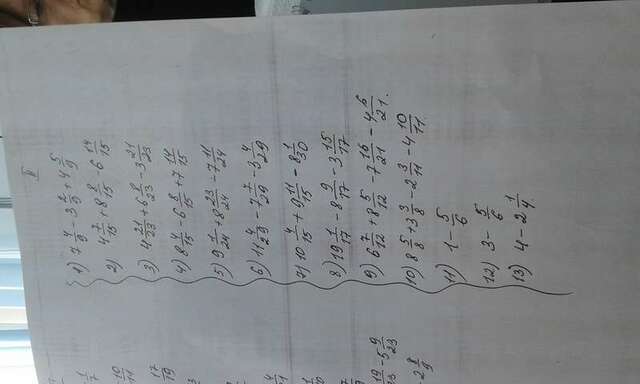 II
1) 7 4/9 - 3 2/9 + 4 5/9
2) 4 7/15 + 8 8/15 - 6 14/15
3) 4 21/23 + 6 8/23 - 3 21/23
4) 8 4/15 - 6 8/15 + 7 14/15
5) 9 1/24 + 8 23/24 - 7 11/24
6) 11 4/29 - 7 7/29 - 3 4/29
7) 10 4/15 + 9 11/15 - 8 1/30
8) 19 1/17 - 8 9/17 - 3 15/17
9) 6 7/12 + 8 5/12 - 7 16/21 - 4 6/21.
10) 8 5/8 + 3 3/8 - 2 3/11 - 4 10/11
11) 1 - 5/6
12) 3 - 5/6
13) 4 - 2 1/4.
1/7
10/11
17/19
19/23 - 5 9/23
- 2 8/9